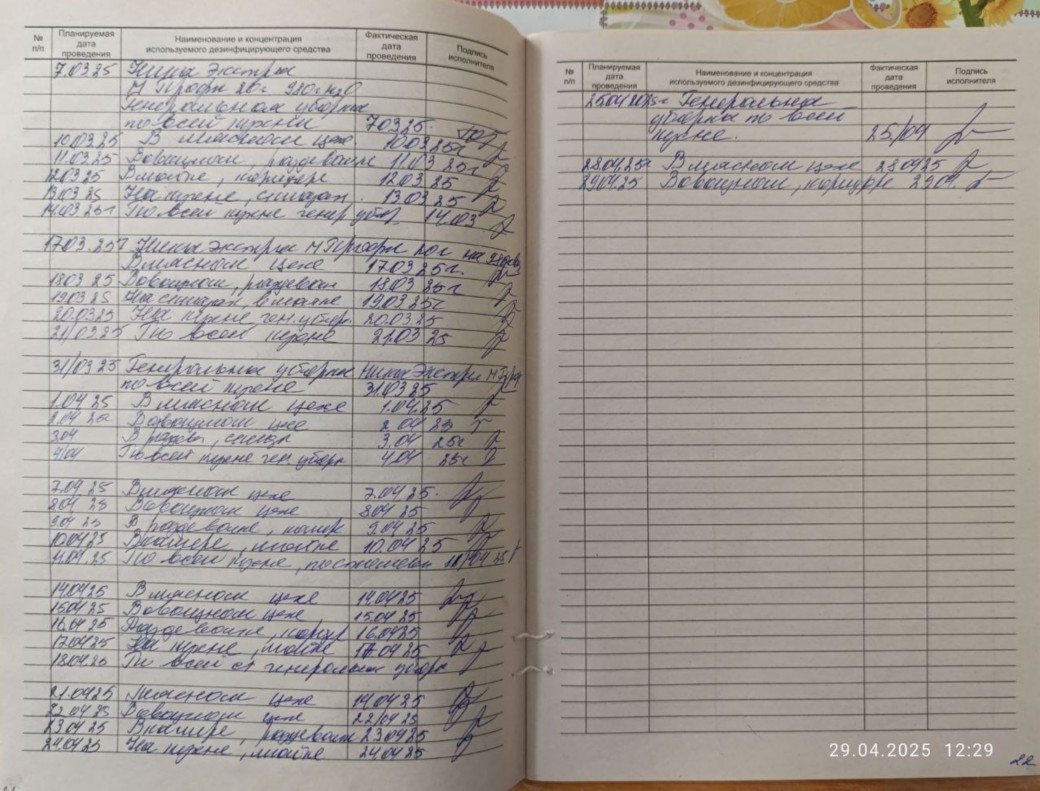 № п/п Планируемая дата проведения Наименование и концентрация используемого дезинфицирующего средства Фактическая дата проведения Подпись исполнителя
7.03 25 Ника Экстра
М Профи 20г
Генеральная уборка
по всей кухни 7.03.25.
10.03.25 В мясном цехе 10.03.25г
11.03.25 В овощном, раздевалке 11.03 25г
12.03 25 В мойке, коридоре 12.03 25
13.03 25 На кухне, 13.03 25г
14.03 25г По всей кухне генер убор 14.03
17.03.25г Ника Экстра М Профи 20г на
В мясном цехе 17.03 25г.
18.03 25 В овощном, раздевал 18.03 25г
19.03 25 На, в мойке 19.03 25г
20.03.25 На кухне, ген. убор. 20.03.25
21/03 25 По всей кухне 21.03 25
31/03 25 Генеральная уборка Ника Экстра М
по всей кухне 31.03.25
1.04 25 В мясном цехе 1.04.25
2.04 25г В овощном цехе 2.04 25
3.04 В 3.04 25г
4/04 По всей кухне ген. уборк 4.04 25г
7.04 25 В мясном цехе 7.04 25.
8.04 25 В овощном цехе 8.04 25
9.04 25 В раздевалке, 9.04.25
10.04.25 В, мойке 10.04.25
11.04.25 По всей кухне,
14.04.25 В мясном цехе 14.04.25
15.04.25 В овощном цехе 15.04.25
16.04.25 Раздевалке, 16.04.25
17.04.25 На кухне, мойке 17.04.25
18.04.25 По всей генеральная уборк
21.04.25 Мясном цехе
22.04.25 В овощном цехе 22/04 25
23.04 25 В, раздевалк 23.04.25
24.04.25 На кухне, мойке 24.04.25
№ п/п Планируемая дата проведения Наименование и концентрация используемого дезинфицирующего средства Фактическая дата проведения Подпись исполнителя
25.04 Генеральная
уборка по всей
кухне. 25/04
28.04.25г В мясном цехе 28.04.25
29.04.25 В овощном, коридоре 29.04.
29.04.2025 12:29
22